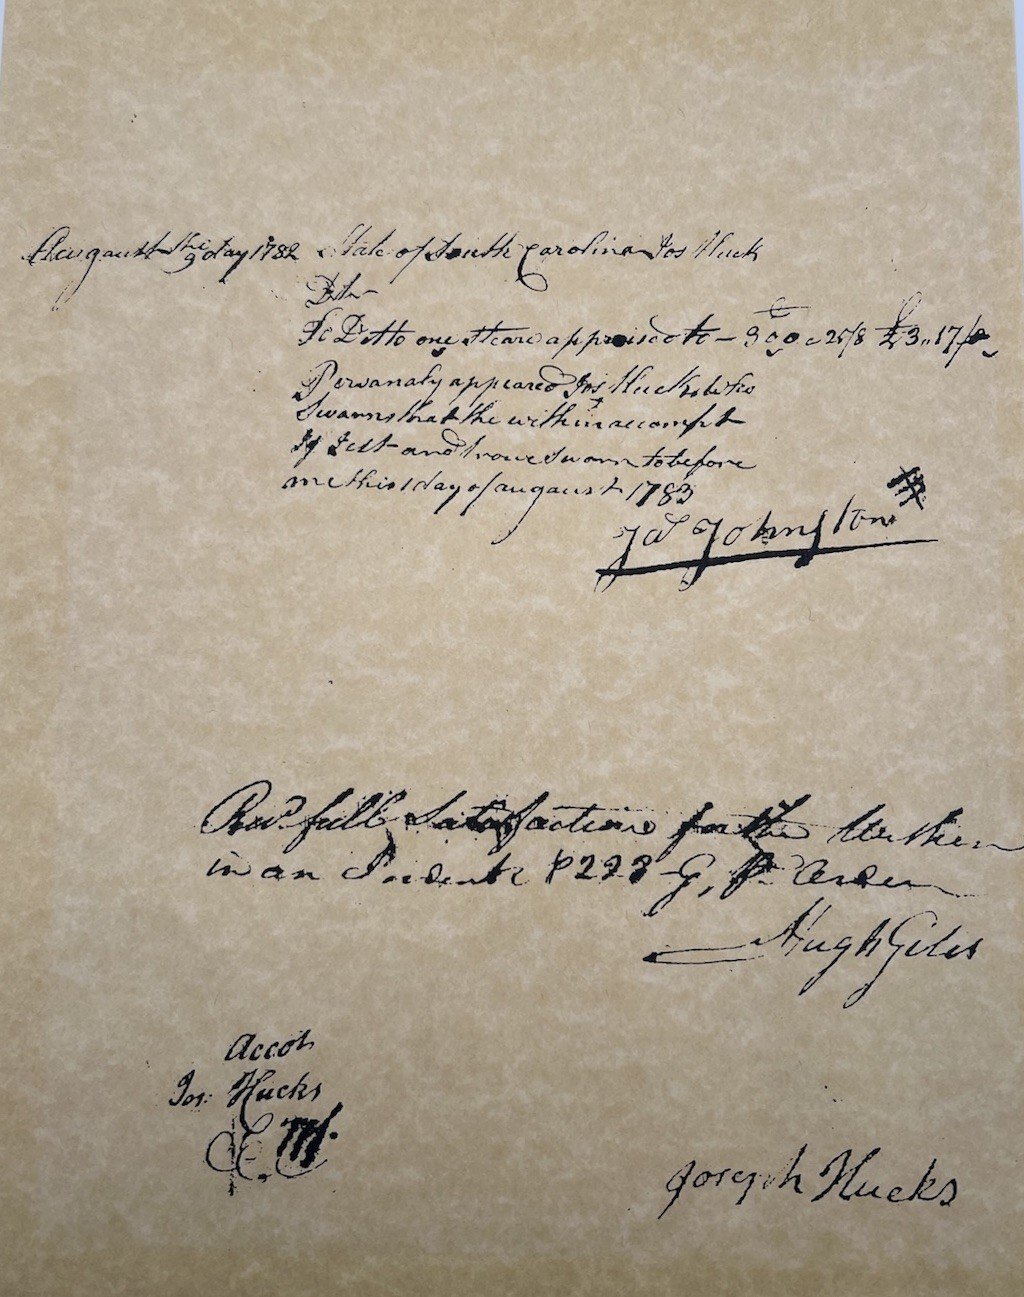 Augaust the 9 day 1782 State of South Carolina Jos Huck
Dtr
To Ditto one Steare appraised to - £3,,17/
Persanaly appeared Jos Hucks who
Swarns that the within accompt
Is Jest and troue Sworn to before
me this 1 day of augaust 1783
Ja Johnston
Recd. full Satisfaction for the within
in an Indent 223 G,
Hugh Giles
Accot
Jos: Hucks
Joseph Hucks